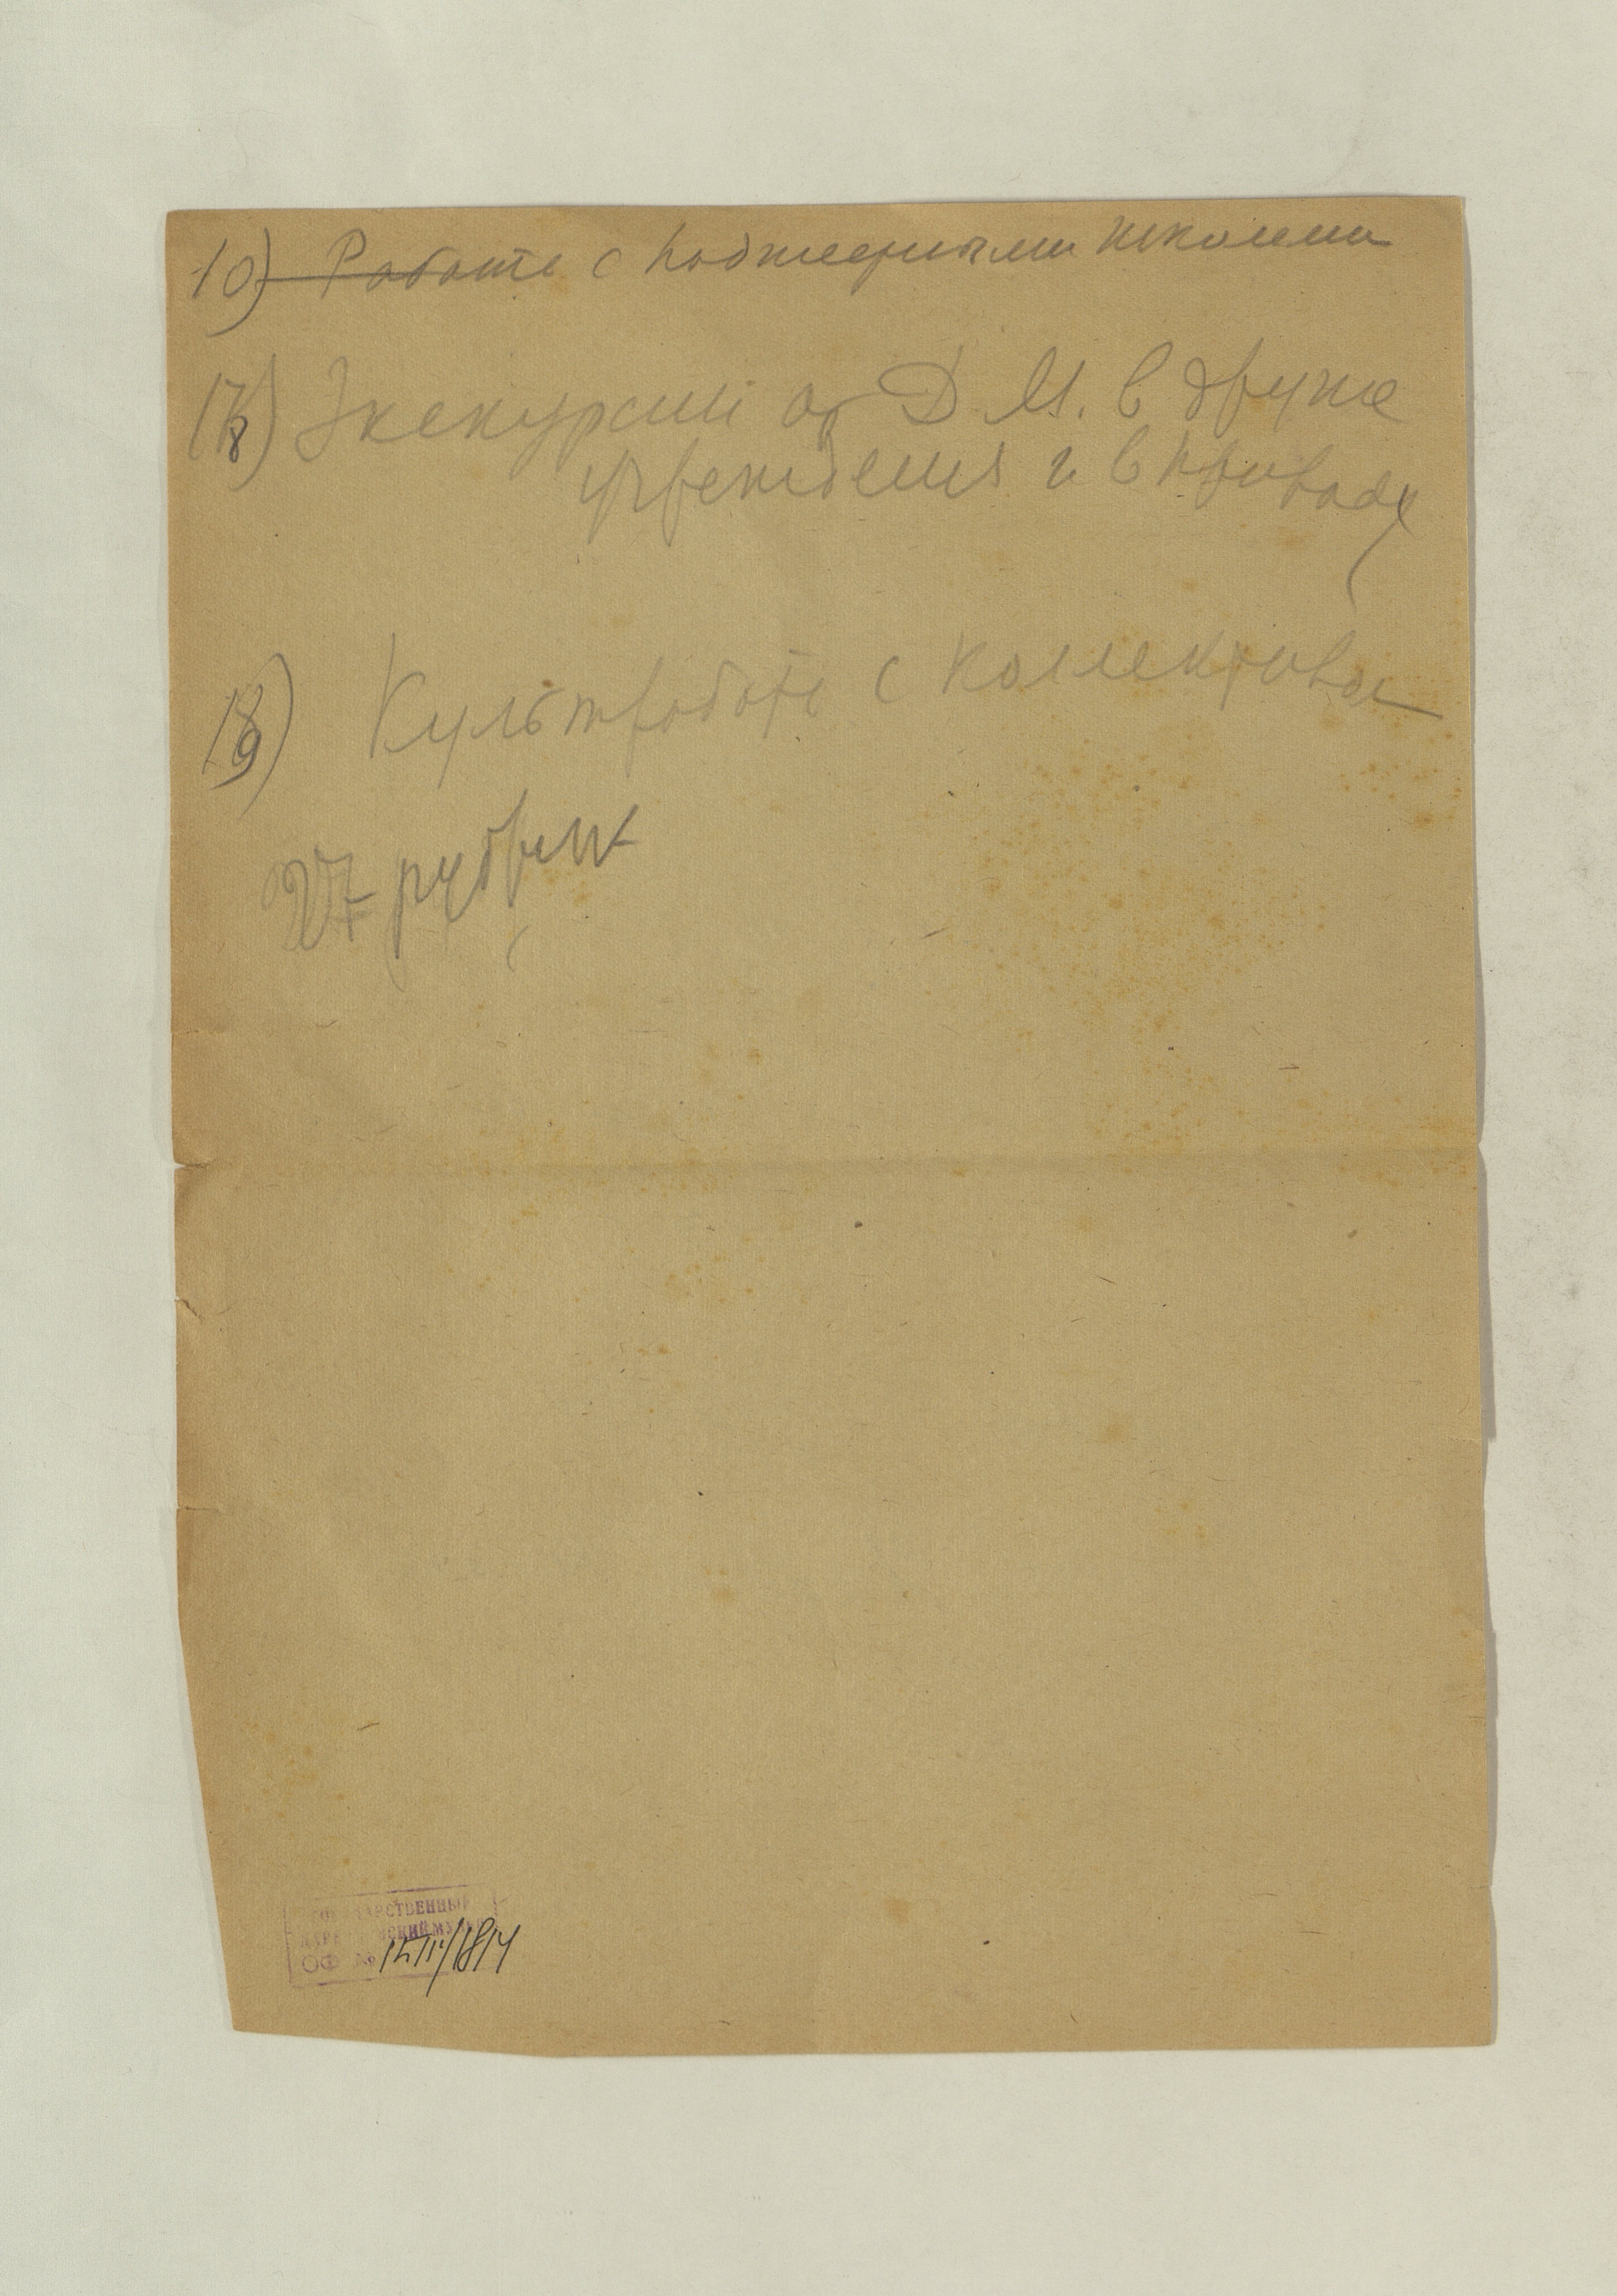 10) Работа с подшефными школами
18) Экскурсии от Д. М. в другие
учреждения и в природу
19) Культработа с коллективом
27 рубрик
ГОСУДАРСТВЕННЫЙ
ДАРВИНОВСКИЙ МУЗЕЙ
ОФ №